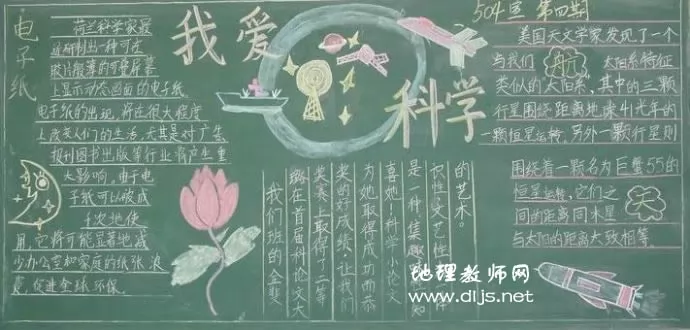 电子纸
荷兰科学家最
近研制出一种可在
胶片般薄的可叠屏幕
上显示动态图画的电子纸
电子纸的出现,将在很大程度
上改变人们的生活,尤其是对广告
报刊图书出版等行业将产生重
大影响,由于电
子纸可以被成
千次地使
用,它将可能显著地减
少办公室和家庭的纸张浪
费,促进全球环保。
我爱
科学
504室 第四期
美国天文学家发现了一个
与我们 航 太阳系特征
类似的太阳系,其中的三颗
行星围绕距离地球41光年的
一颗恒星运转,另外一颗行星则
围绕着一颗名为巨蟹55的
恒星运转,它们之 天
间的距离同木星
与太阳的距离大致相等。
的艺术。
识性文艺性
是一种集趣
喜她!科学小论文
为她取得成功而恭
奖的好成绩,让我们
奖赛上取得了二等
在首届科论文大
我们班的金斐
地理教师网
www.dljs.net